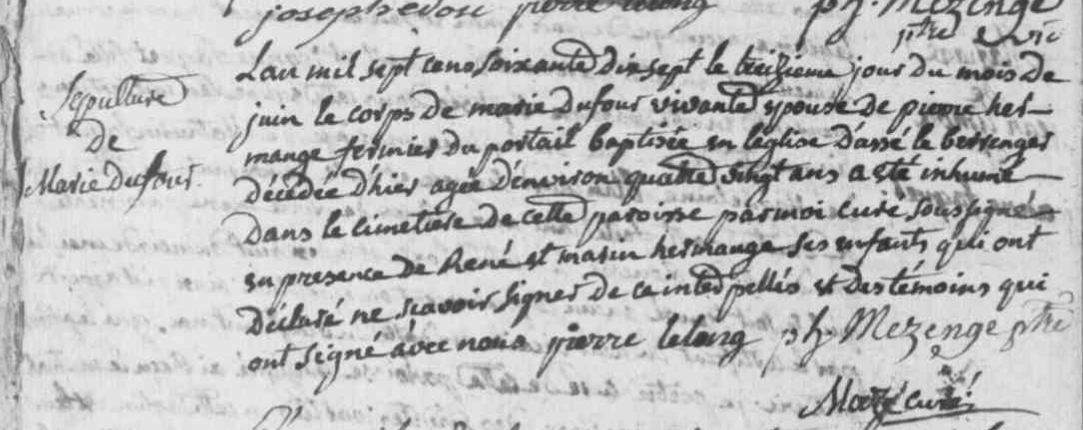 joseph pierre lelong ph. Mezenge
ptre vic
Sepulture
de
Marie Dufour
L'an mil sept cens soixante dix sept le treizieme jour du mois de
juin le corps de marie Dufour vivante epouse de pierre her-
mange fermier du portail baptisée en l'eglise d'assé le berrenger
Décédée d'hier agée d'environ quatre vingt ans a esté inhumé
Dans le cimetiere de cette paroisse par moi curé soussigné
en presence de René et marin hermange ses enfants qui ont
Déclaré ne sçavoir signer de ce interpellés et des témoins qui
ont signé avec nous pierre lelong ph Mezenge ptre
curé